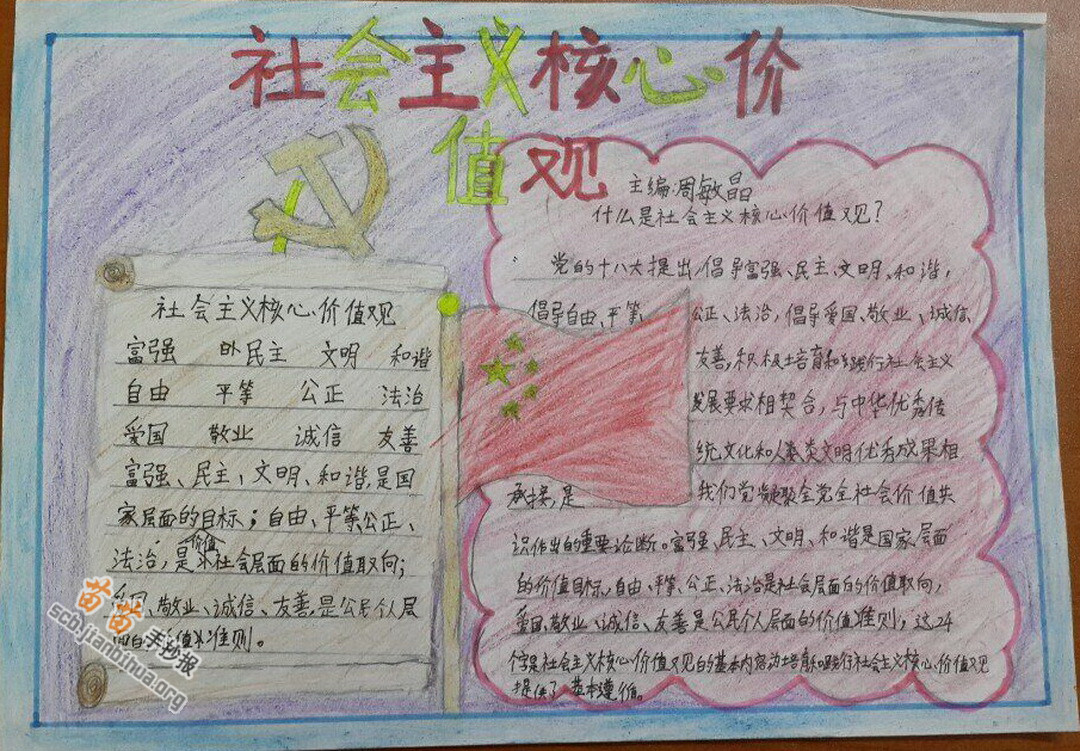 社会主义核心价
值观
主编:周敏晶
什么是社会主义核心价值观?
党的十八大提出,倡导富强、民主、文明、和谐,
倡导自由、平等、公正、法治,倡导爱国、敬业、诚信
友善,积极培育和践行社会主义
发展要求相契合,与中华优秀传
统文化和人类文明优秀成果相
承接,是我们党凝聚全党全社会价值共
识作出的重要论断。富强、民主、文明、和谐是国家层面
的价值目标,自由、平等、公正、法治是社会层面的价值取向,
爱国、敬业、诚信、友善是公民个人层面的价值准则,这24
个字是社会主义核心价值观的基本内容,为培育和践行社会主义核心价值观
提供了基本遵循。
社会主义核心价值观
富强 民主 文明 和谐
自由 平等 公正 法治
爱国 敬业 诚信 友善
富强、民主、文明、和谐,是国
家层面的价值目标;自由、平等、公正、
法治,是社会层面的价值取向;
国、敬业、诚信、友善,是公民个人层
面的价值准则。
苗苗手抄报
scb.jianbihua.org